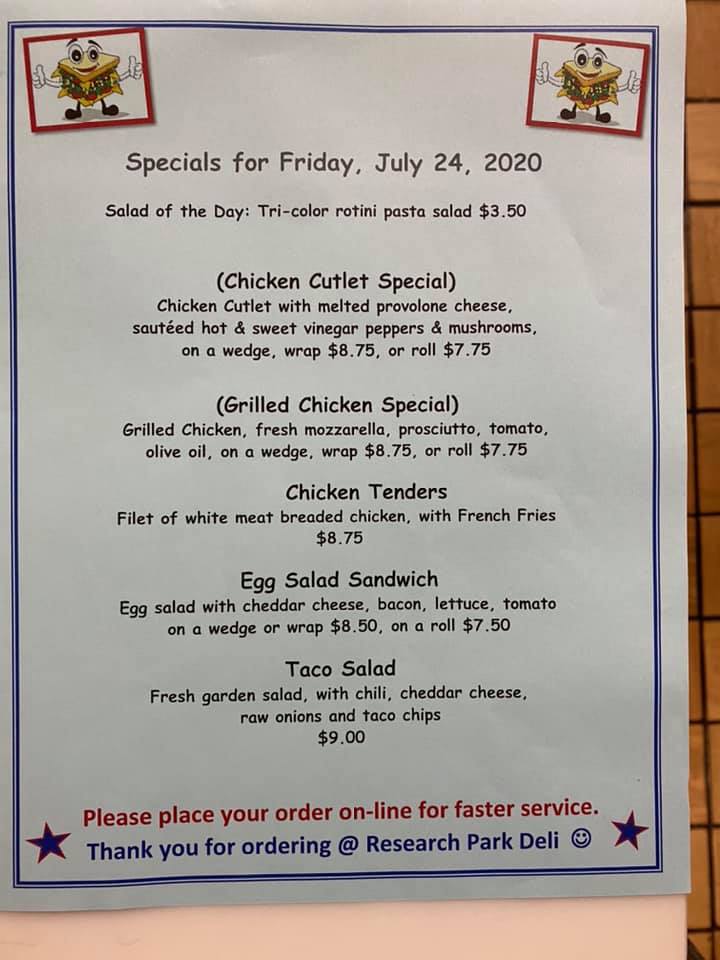 Specials for Friday, July 24, 2020
Salad of the Day: Tri-color rotini pasta salad $3.50
(Chicken Cutlet Special)
Chicken Cutlet with melted provolone cheese,
sautéed hot & sweet vinegar peppers & mushrooms,
on a wedge, wrap $8.75, or roll $7.75
(Grilled Chicken Special)
Grilled Chicken, fresh mozzarella, prosciutto, tomato,
olive oil, on a wedge, wrap $8.75, or roll $7.75
Chicken Tenders
Filet of white meat breaded chicken, with French Fries
$8.75
Egg Salad Sandwich
Egg salad with cheddar cheese, bacon, lettuce, tomato
on a wedge or wrap $8.50, on a roll $7.50
Taco Salad
Fresh garden salad, with chili, cheddar cheese,
raw onions and taco chips
$9.00
Please place your order on-line for faster service.
Thank you for ordering @ Research Park Deli ☺